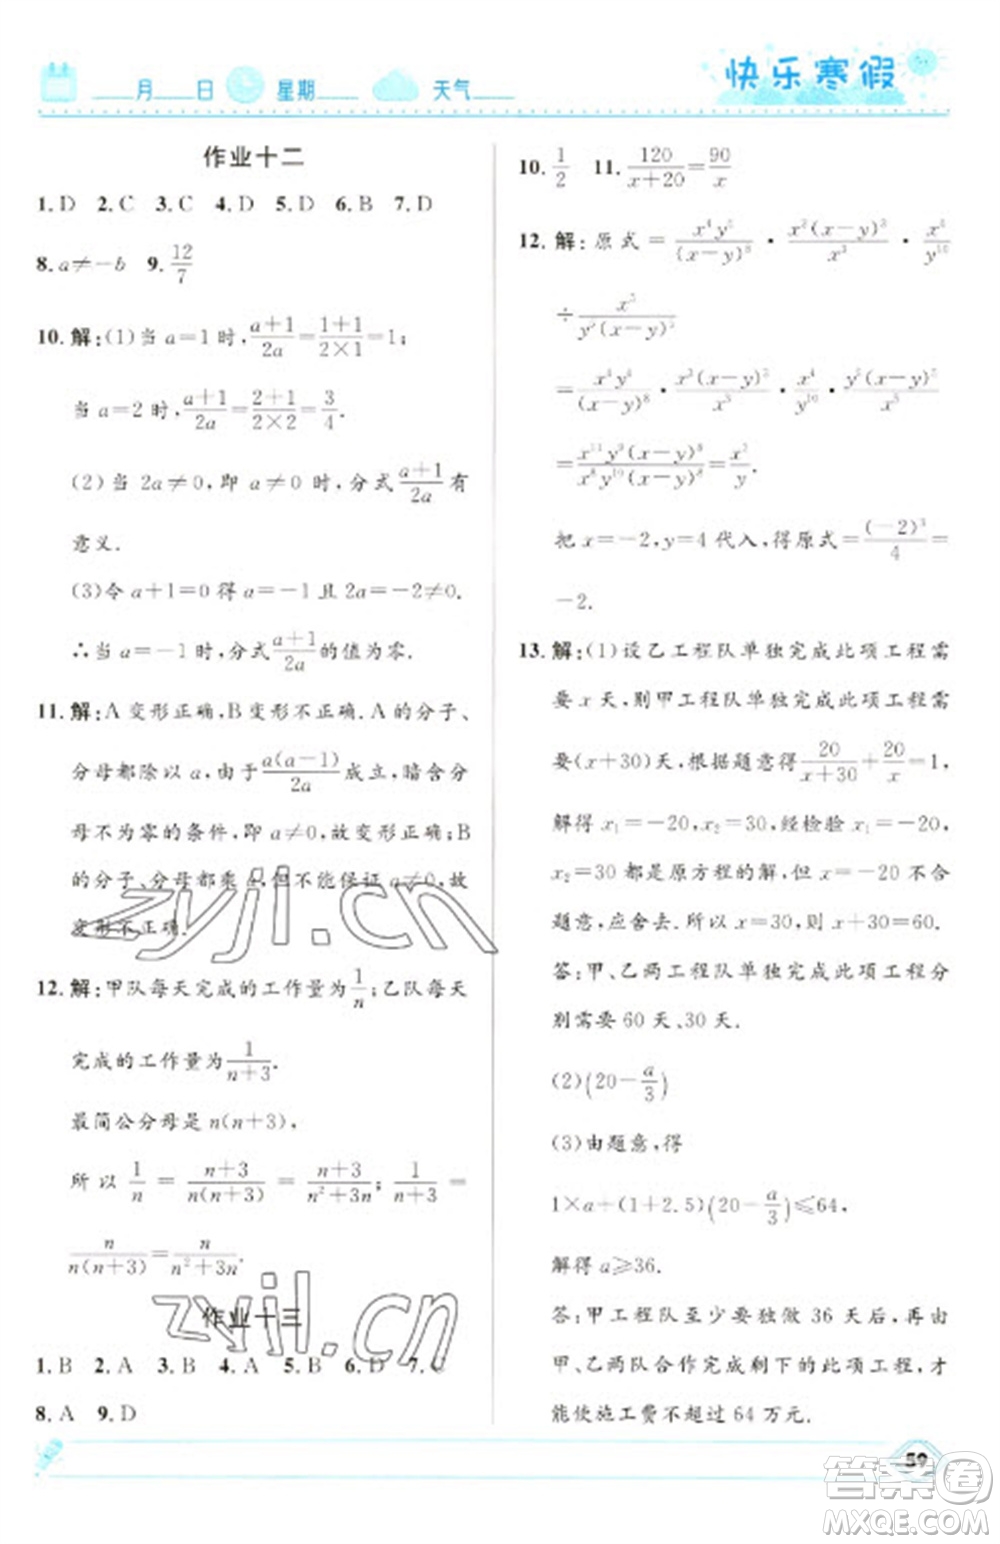 ____月____日 星期____ 天气____
快乐寒假
作业十二
1. D 2. C 3. C 4. D 5. D 6. B 7. D
8. a≠-b 9. 12/7
10. 解:(1)当 a=1 时, (a+1)/2a = (1+1)/(2×1) = 1;
当 a=2 时, (a+1)/2a = (2+1)/(2×2) = 3/4.
(2)当 2a≠0,即 a≠0 时,分式 (a+1)/2a 有
意义.
(3)令 a+1=0 得 a=-1 且 a≠0.
∴当 a=-1 时,分式 (a+1)/2a 的值为零.
11. 解:A 变形正确,B 变形不正确.A 的分子、
分母都除以 a,由于 a(a-1)/2a 成立,暗含分
母不为零的条件,即 a≠0,故变形正确;B
的分子、分母都乘 a,但不能保证 a≠0,故
变形不正确.
12. 解:甲队每天完成的工作量为 1/n;乙队每天
完成的工作量为 1/(n+3).
最简公分母为 n(n+3),
所以 1/n = (n+3)/(n(n+3)) = (n+3)/(n²+3n); 1/(n+3) =
n/(n(n+3)) = n/(n²+3n).
作业十三
1. B 2. A 3. B 4. A 5. B 6. D 7. C
8. A 9. D
10. 1/2 11. 120/(x+20) = 90/x
12. 解:原式=
把 x=-2,y=4 代入,得原式= (-2)³/4 =
-2.
13. 解:(1)设乙工程队单独完成此项工程需
要 x 天,则甲工程队单独完成此项工程需
要(x+30)天,根据题意得 20/(x+30) + 20/x = 1,
解得 x₁=-20,x₂=30,经检验 x₁=-20,
x₂=30 都是原方程的解,但 x=-20 不合
题意,应舍去.所以 x=30,则 x+30=60.
答:甲、乙两工程队单独完成此项工程分
别需要 60 天、30 天.
(2)(20-a/3)
(3)由题意,得
1×a+(1+2.5)(20-a/3)≤64,
解得 a≥36.
答:甲工程队至少要独做 36 天后,再由
甲、乙两队合作完成剩下的此项工程,才
能使施工费不超过 64 万元.
59
zyjl.cn
zyjl.cn
答案圈
MXQE.COM